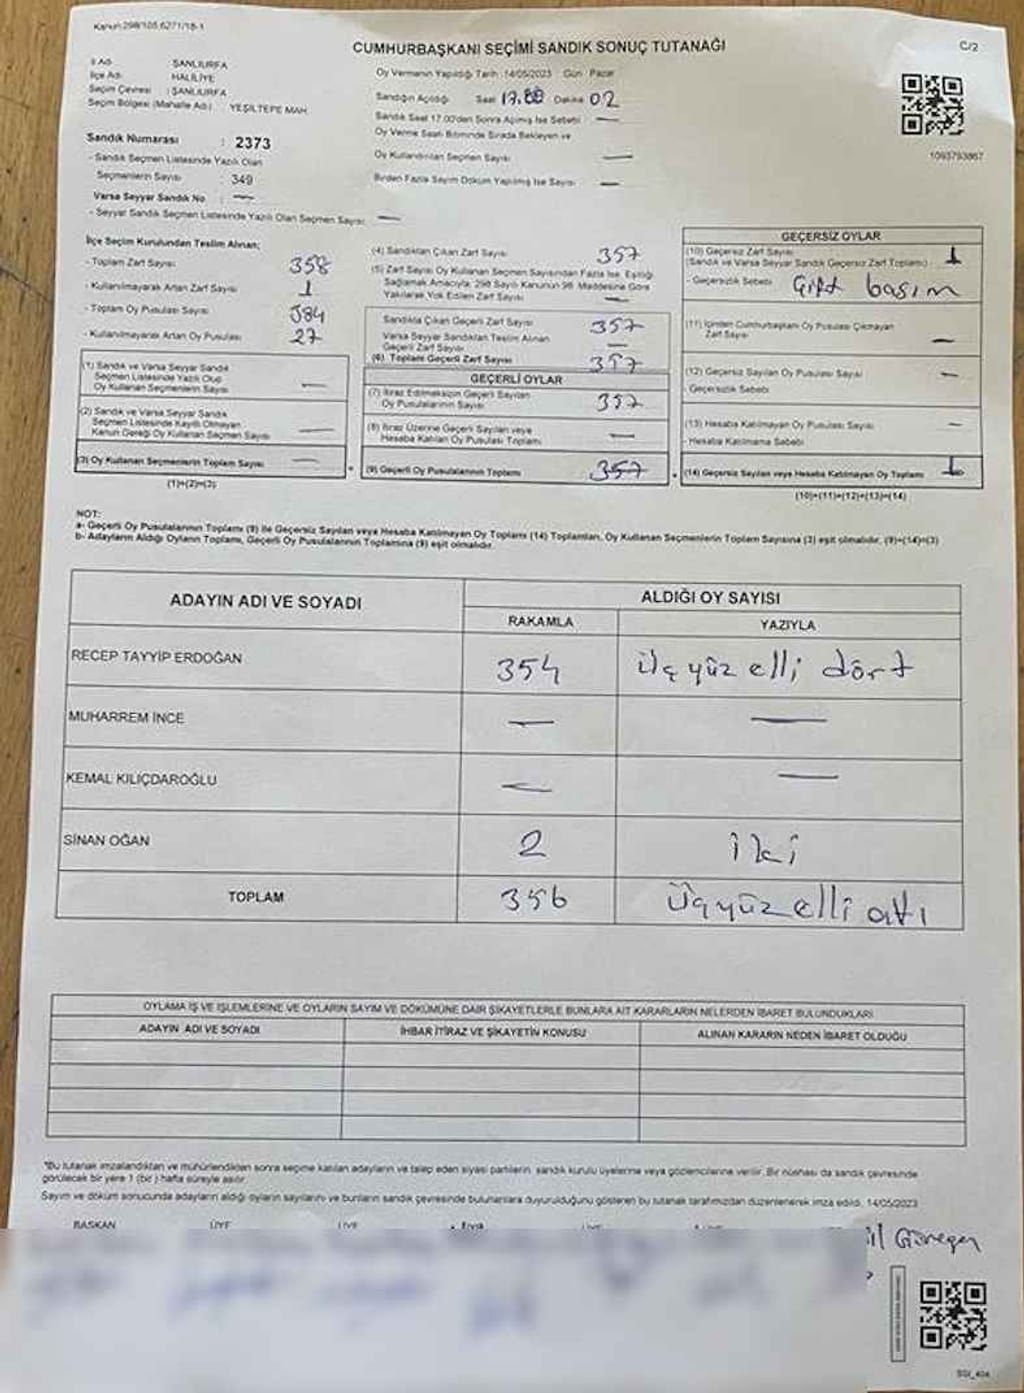 Kanun:298/105 6271/18-1
CUMHURBAŞKANI SEÇİMİ SANDIK SONUÇ TUTANAĞI
C/2
İl Adı : ŞANLIURFA
İlçe Adı : HALİLİYE
Seçim Çevresi : ŞANLIURFA
Seçim Bölgesi (Mahalle Adı) : YEŞİLTEPE MAH
Sandık Numarası : 2373
- Sandık Seçmen Listesinde Yazılı Olan
Seçmenlerin Sayısı : 349
Varsa Seyyar Sandık No : —
- Seyyar Sandık Seçmen Listesinde Yazılı Olan Seçmen Sayısı: —
Oy Vermenin Yapıldığı Tarih :14/05/2023 Gün : Pazar
Sandığın Açıldığı Saat 17.00 Dakika 02
Sandık Saat 17.00'den Sonra Açılmış İse Sebebi —
Oy Verme Saati Bitiminde Sırada Bekleyen ve
Oy Kullandırılan Seçmen Sayısı —
Birden Fazla Sayım Döküm Yapılmış İse Sayısı —
1093793867
İlçe Seçim Kurulundan Teslim Alınan;
- Toplam Zarf Sayısı 358
- Kullanılmayarak Artan Zarf Sayısı 1
- Toplam Oy Pusulası Sayısı 384
- Kullanılmayarak Artan Oy Pusulası 27
(1) Sandık ve Varsa Seyyar Sandık
Seçmen Listesinde Yazılı Olup
Oy Kullanan Seçmenlerin Sayısı —
(2) Sandık ve Varsa Seyyar Sandık
Seçmen Listesinde Kayıtlı Olmayan
Kanun Gereği Oy Kullanan Seçmen Sayısı —
(3) Oy Kullanan Seçmenlerin Toplam Sayısı —
(1)+(2)=(3)
(4) Sandıktan Çıkan Zarf Sayısı 357
(5) Zarf Sayısı Oy Kullanan Seçmen Sayısından Fazla İse, Eşitliği
Sağlamak Amacıyla, 298 Sayılı Kanunun 98. Maddesine Göre
Yakılarak Yok Edilen Zarf Sayısı —
Sandıkta Çıkan Geçerli Zarf Sayısı 357
Varsa Seyyar Sandıktan Teslim Alınan
Geçerli Zarf Sayısı —
(6) Toplam Geçerli Zarf Sayısı 357
GEÇERLİ OYLAR
(7) İtiraz Edilmeksizin Geçerli Sayılan
Oy Pusulalarının Sayısı 357
(8) İtiraz Üzerine Geçerli Sayılan veya
Hesaba Katılan Oy Pusulası Toplamı —
(9) Geçerli Oy Pusulalarının Toplamı 357
GEÇERSİZ OYLAR
(10) Geçersiz Zarf Sayısı 1
(Sandık ve Varsa Seyyar Sandık Geçersiz Zarf Toplamı)
- Geçersizlik Sebebi Çift basım
(11) İçinden Cumhurbaşkanı Oy Pusulası Çıkmayan
Zarf Sayısı —
(12) Geçersiz Sayılan Oy Pusulası Sayısı —
- Geçersizlik Sebebi
(13) Hesaba Katılmayan Oy Pusulası Sayısı —
- Hesaba Katılmama Sebebi
(14) Geçersiz Sayılan veya Hesaba Katılmayan Oy Toplamı 1
(10)+(11)+(12)+(13)=(14)
NOT:
a- Geçerli Oy Pusulalarının Toplamı (9) ile Geçersiz Sayılan veya Hesaba Katılmayan Oy Toplamı (14) Toplamları, Oy Kullanan Seçmenlerin Toplam Sayısına (3) eşit olmalıdır. (9)+(14)=(3)
b- Adayların Aldığı Oyların Toplamı, Geçerli Oy Pusulalarının Toplamına (9) eşit olmalıdır.
ADAYIN ADI VE SOYADI ALDIĞI OY SAYISI
RAKAMLA YAZIYLA
RECEP TAYYİP ERDOĞAN 354 üçyüz elli dört
MUHARREM İNCE — —
KEMAL KILIÇDAROĞLU — —
SİNAN OĞAN 2 iki
TOPLAM 356 Üçyüz elli altı
OYLAMA İŞ VE İŞLEMLERİNE VE OYLARIN SAYIM VE DÖKÜMÜNE DAİR ŞİKAYETLERLE BUNLARA AİT KARARLARIN NELERDEN İBARET BULUNDUKLARI
ADAYIN ADI VE SOYADI İHBAR İTİRAZ VE ŞİKAYETİN KONUSU ALINAN KARARIN NEDEN İBARET OLDUĞU
*Bu tutanak imzalandıktan ve mühürlendikten sonra seçime katılan adayların ve talep eden siyasi partilerin, sandık kurulu üyelerine veya gözlemcilerine verilir. Bir nüshası da sandık çevresinde
görülecek bir yere 1 (bir) hafta süreyle asılır.
Sayım ve döküm sonucunda adayların aldığı oyların sayılarını ve bunların sandık çevresinde bulunanlara duyurulduğunu gösteren bu tutanak tarafımızdan düzenlenerek imza edildi. 14/05/2023
BAŞKAN ÜYE ÜYE ÜYE ÜYE ÜYE